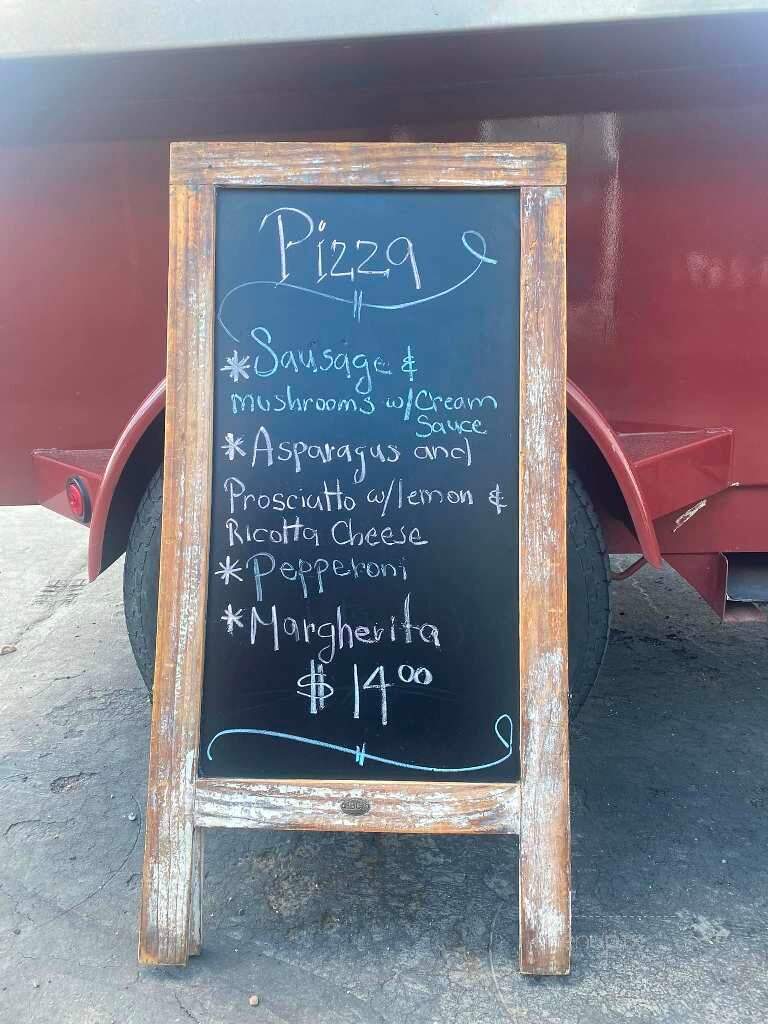 Pizza
*Sausage &
mushrooms w/Cream
Sauce
*Asparagus and
Prosciutto w/lemon &
Ricotta Cheese
*Pepperoni
*Margherita
$14.00